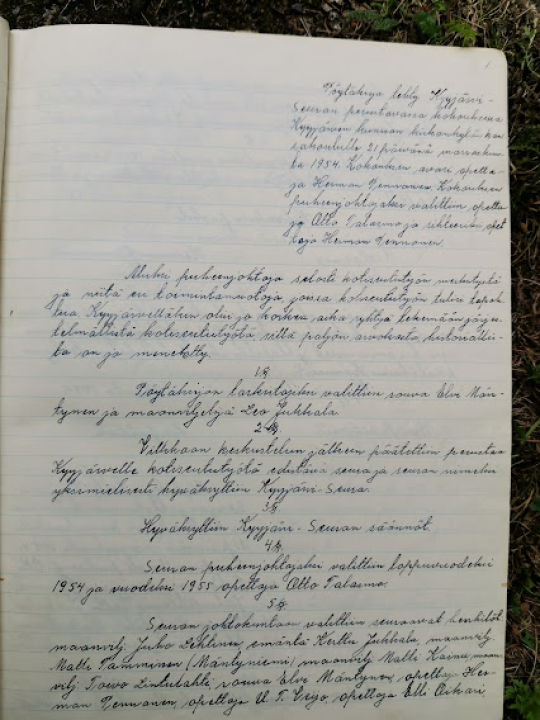 1
Pöytäkirja tehty Kyyjärvi-
Seuran perustavassa kokouksessa
Kyyjärven kunnan kirkonkylän kan
sakoululla 21 päivänä marrasku-
ta 1954. Kokouksen avasi opetta-
ja Herman Pennanen. Kokouksen
puheenjohtajaksi valittiin opetta
ja Atto Talasmo ja sihteeriksi opet
taja Herman Pennanen.
Aluksi puheenjohtaja selosti kotiseututyön merkitystä
ja niitä eri toimintamuotoja, joissa kotiseututyö tulisi tapah-
tua. Kyyjärvelläkin olisi jo korkea aika ryhtyä tekemään järjes-
telmällistä kotiseututyötä, sillä paljon arvokasta historiallis-
ta on jo menetetty.
1 §
Pöytäkirjan tarkastajiksi valittiin rouva Elve Män-
tynen ja maanviljelijä Leo Jukkala.
2 §.
Vilkkaan keskustelun jälkeen päätettiin perustaa
Kyyjärvelle kotiseututyötä edistävä seura ja seuran nimeksi
yksimielisesti hyväksyttiin Kyyjärvi-Seura.
3 §
Hyväksyttiin Kyyjärvi-Seuran säännöt.
4 §
Seuran puheenjohtajaksi valittiin loppuvuodeksi
1954 ja vuodeksi 1955 opettaja Atto Talasmo.
5 §
Seuran johtokuntaan valittiin seuraavat henkilöt:
maanvilj. Juho Lehtinen, emäntä Herttu Jukkala, maanvilj.
Matti Tamminen (Mäntyniemi) maanvilj Matti Kainu, maan
vilj. Toivo Lintulahti, rouva Elve Mäntynen, opettaja Her-
man Pennanen, opettaja U. T. opettaja Elli Oikari,